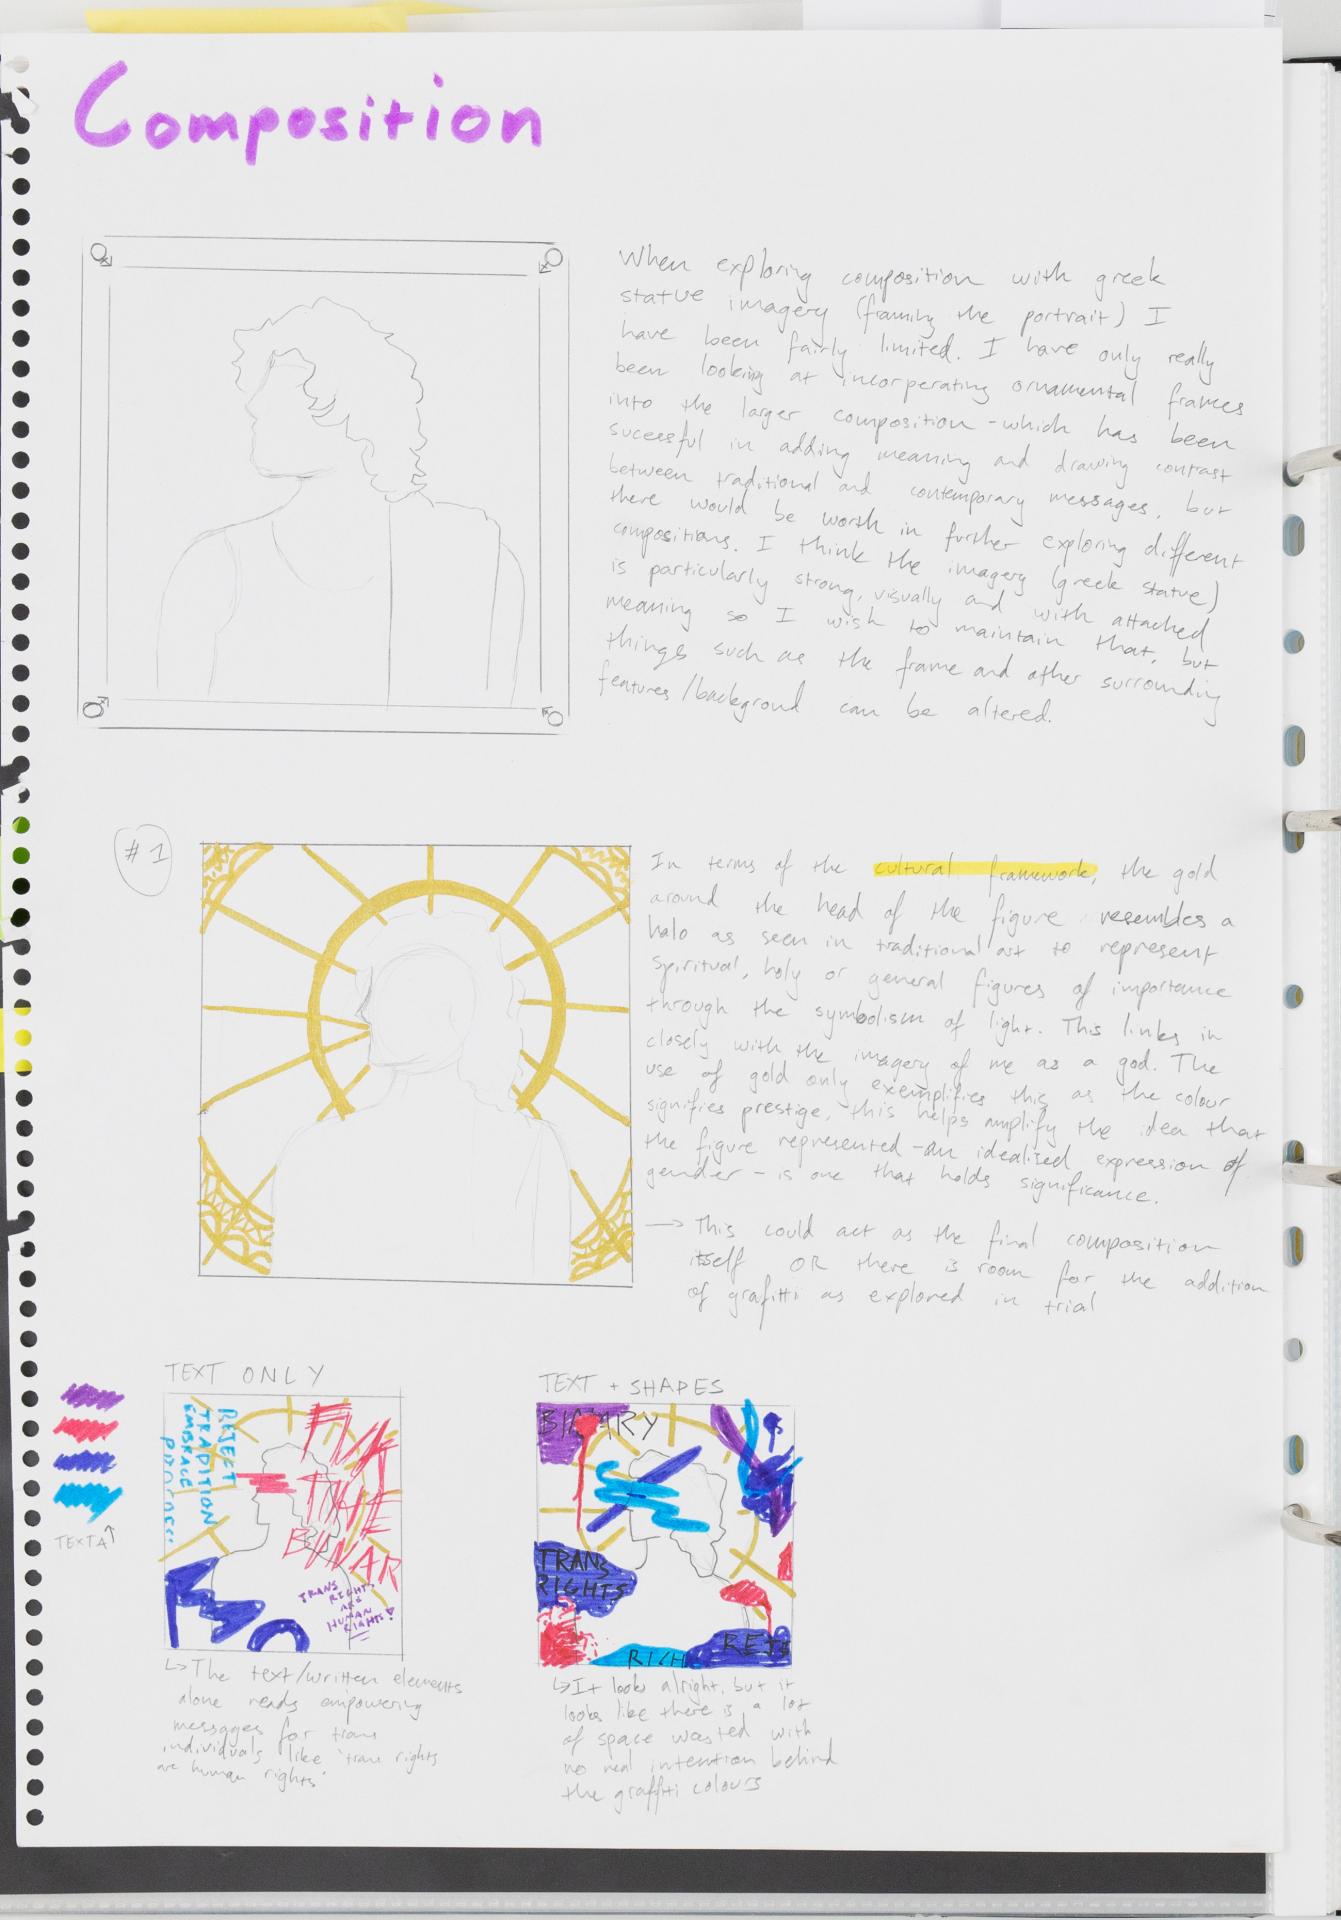 Composition
When exploring composition with greek
statue imagery (framing the portrait) I
have been fairly limited. I have only really
been looking at incorperating ornamental frames
into the larger composition - which has been
sucessful in adding meaning and drawing contrast
between traditional and contemporary messages, but
there would be worth in further exploring different
compositions. I think the imagery (greek statue)
is particularly strong, visually and with attached
meaning so I wish to maintain that, but
things such as the frame and other surrounding
features/background can be altered.
#1
In terms of the cultural framework, the gold
around the head of the figure resembles a
halo as seen in traditional art to represent
spiritual, holy or general figures of importance
through the symbolism of light. This links in
closely with the imagery of me as a god. The
use of gold only exemplifies this as the colour
signifies prestige, this helps amplify the idea that
the figure represented - an idealised expression of
gender - is one that holds significance.
→ This could act as the final composition
itself OR there is room for the addition
of grafitti as explored in trial
TEXT ONLY
REJECT
TRADITION
EMBRACE
THE
BINAR
TRANS
RIGHTS
ARE
HUMAN
RIGHTS!
TEXTA↑
↳ The text/written elements
alone reads empowering
messages for trans
individuals like 'trans rights
are human rights'
TEXT + SHAPES
BINARY
TRANS
RIGHTS
RIGH
REJE
↳ It looks alright, but it
looks like there is a lot
of space wasted with
no real intention behind
the graffiti colours